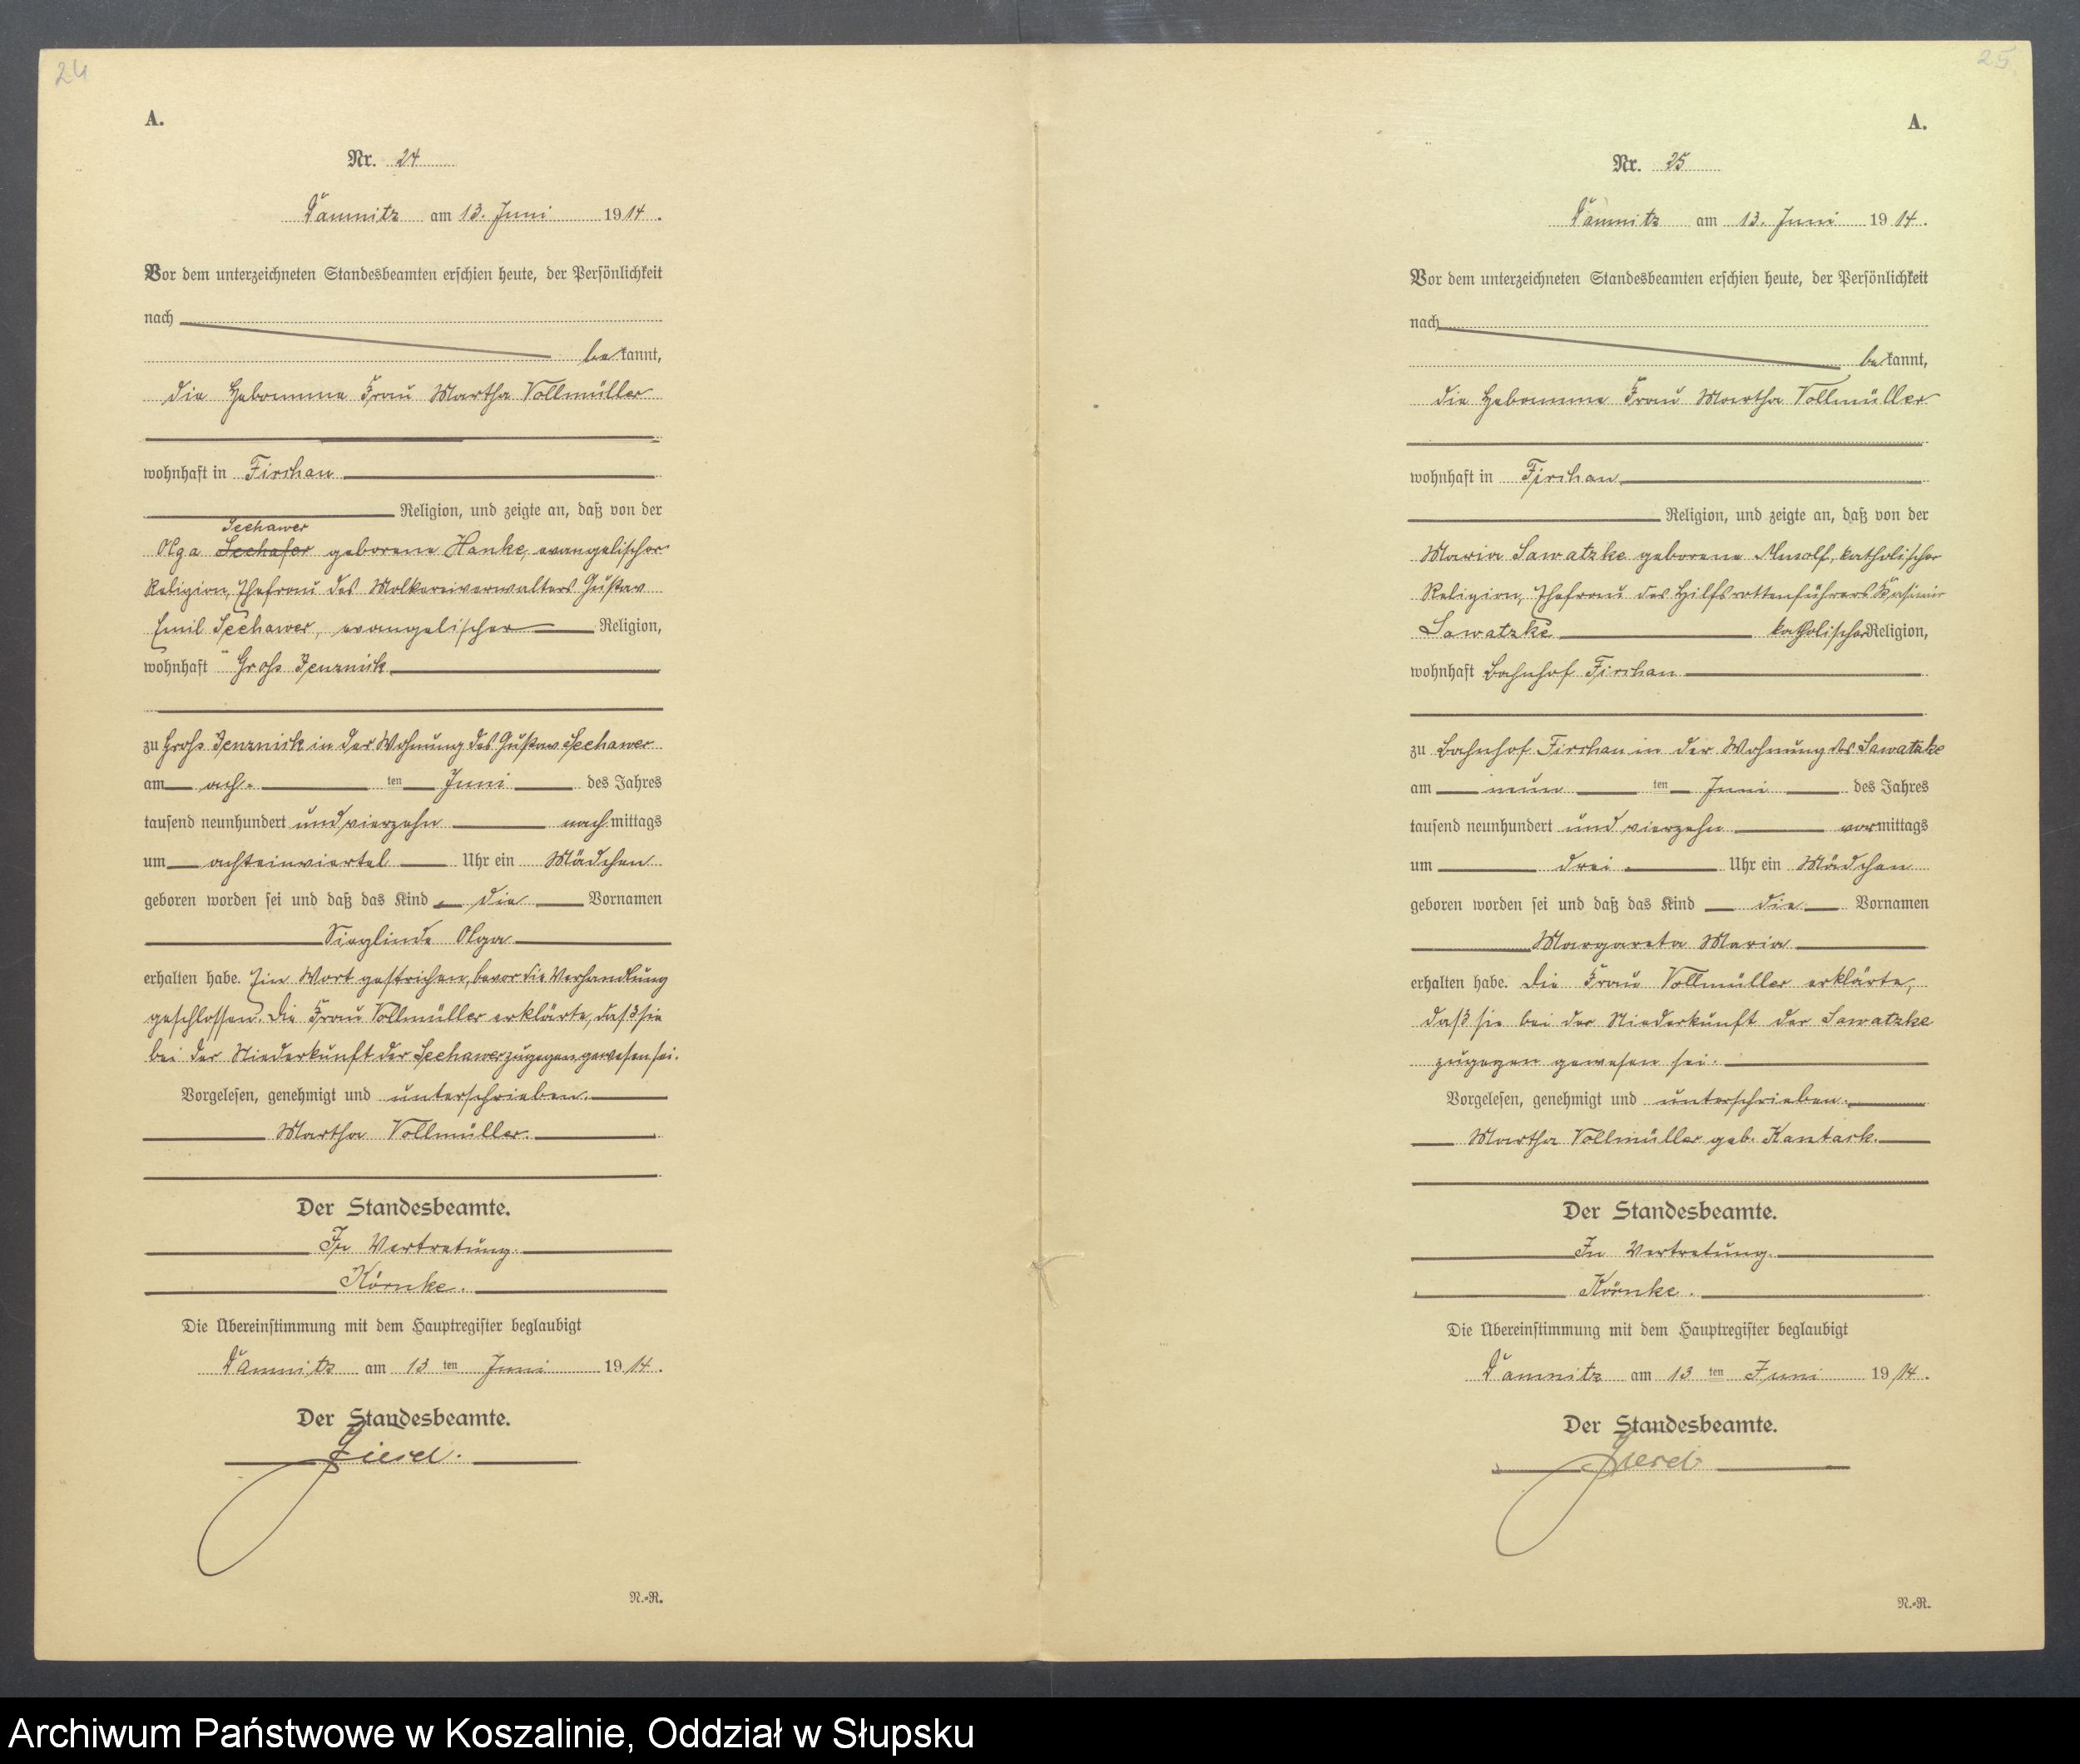 24
A.
Nr. 24
Damnitz am 13. Juni 1914.
Vor dem unterzeichneten Standesbeamten erschien heute, der Persönlichkeit
nach
bekannt,
die Hebamme Frau Martha Vollmüller
wohnhaft in Firchau
Religion, und zeigte an, daß von der
Seehawer
Olga Seehafer geborene Hanke, evangelischer
Religion, Ehefrau des Molkereiverwalters Gustav
Emil Seehawer, evangelischer Religion,
wohnhaft Groß Jenznick
zu Groß Jenznick in der Wohnung des Gustav Seehawer
am ach- ten Juni des Jahres
tausend neunhundert und vierzehn nachmittags
um achteinviertel Uhr ein Mädchen
geboren worden sei und daß das Kind die Vornamen
Sieglinde Olga
erhalten habe. Ein Wort gestrichen, bevor die Verhandlung
geschlossen. Die Frau Vollmüller erklärte, daß sie
bei der Niederkunft der Seehawer zugegen gewesen sei.
Vorgelesen, genehmigt und unterschrieben.
Martha Vollmüller.
Der Standesbeamte.
In Vertretung.
Körnke.
Die Übereinstimmung mit dem Hauptregister beglaubigt
Damnitz am 13 ten Juni 1914.
Der Standesbeamte.
N.-R.
25
A.
Nr. 25
Damnitz am 13. Juni 1914.
Vor dem unterzeichneten Standesbeamten erschien heute, der Persönlichkeit
nach
bekannt,
die Hebamme Frau Martha Vollmüller
wohnhaft in Firchau
Religion, und zeigte an, daß von der
Maria Sawatzke geborene katholischer
Religion, Ehefrau des Hilfsrottenführers Kasimir
Sawatzke katholischer Religion,
wohnhaft Bahnhof Firchau
zu Bahnhof Firchau in der Wohnung des Sawatzke
am neun ten Juni des Jahres
tausend neunhundert und vierzehn vormittags
um drei Uhr ein Mädchen
geboren worden sei und daß das Kind die Vornamen
Margareta Maria
erhalten habe. Die Frau Vollmüller erklärte,
daß sie bei der Niederkunft der Sawatzke
zugegen gewesen sei.
Vorgelesen, genehmigt und unterschrieben.
Martha Vollmüller geb. Kantack.
Der Standesbeamte.
In Vertretung.
Körnke.
Die Übereinstimmung mit dem Hauptregister beglaubigt
Damnitz am 13 ten Juni 1914.
Der Standesbeamte.
N.-R.
Archiwum Państwowe w Koszalinie, Oddział w Słupsku